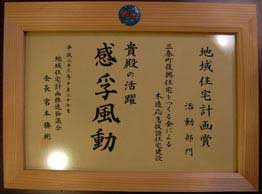 地域住宅計画賞
活動部門
三春町復興住宅をつくる会による
木造応急仮設住宅建設
貴殿の活躍
感孚風動
平成二十三年十月二十七日
地域住宅計画推進協議会
会長 宮本勝彬